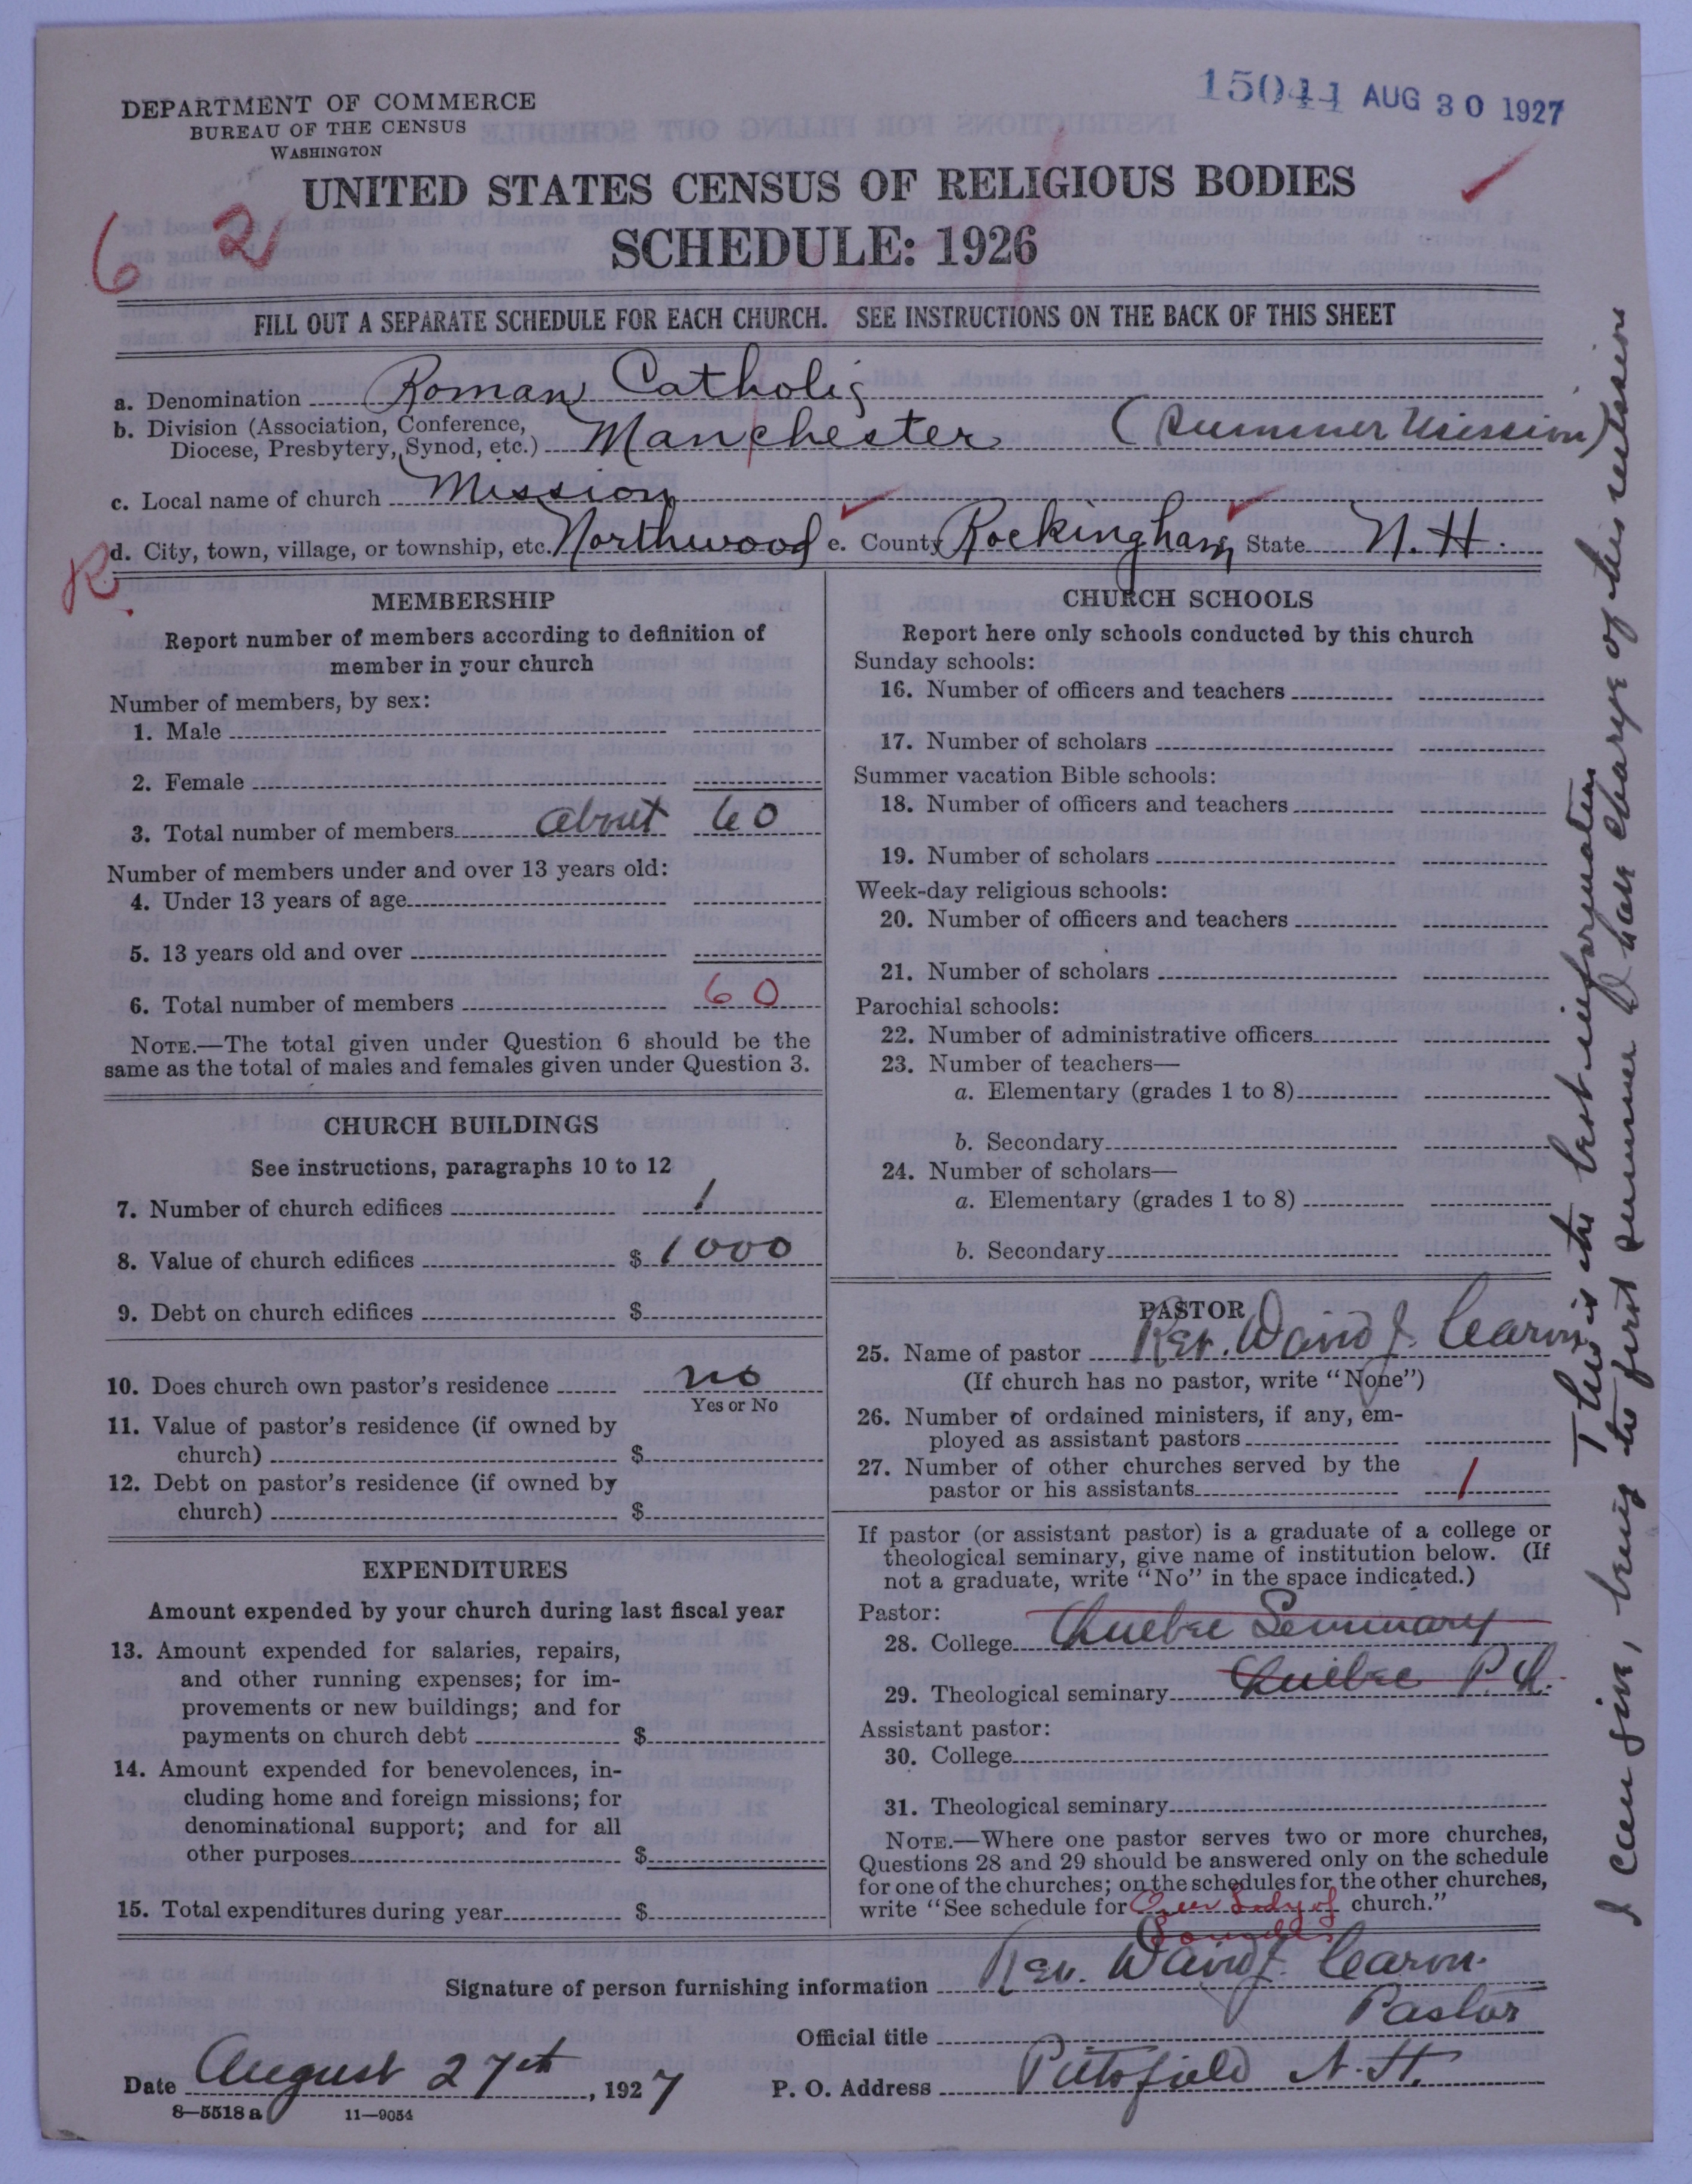 15044 AUG 30 1927
DEPARTMENT OF COMMERCE
BUREAU OF THE CENSUS
WASHINGTON
UNITED STATES CENSUS OF RELIGIOUS BODIES
SCHEDULE: 1926
6 2
FILL OUT A SEPARATE SCHEDULE FOR EACH CHURCH. SEE INSTRUCTIONS ON THE BACK OF THIS SHEET
a. Denomination Roman Catholic
b. Division (Association, Conference,
Diocese, Presbytery, Synod, etc.) Manchester (Summer Mission)
c. Local name of church Mission
R. d. City, town, village, or township, etc. Northwood e. County Rockingham State N. H.
MEMBERSHIP
Report number of members according to definition of
member in your church
Number of members, by sex:
1. Male
2. Female
3. Total number of members about 60
Number of members under and over 13 years old:
4. Under 13 years of age
5. 13 years old and over
6. Total number of members 60
NOTE.—The total given under Question 6 should be the
same as the total of males and females given under Question 3.
CHURCH BUILDINGS
See instructions, paragraphs 10 to 12
7. Number of church edifices 1
8. Value of church edifices $ 1000
9. Debt on church edifices $
10. Does church own pastor's residence no
Yes or No
11. Value of pastor's residence (if owned by
church) $
12. Debt on pastor's residence (if owned by
church) $
EXPENDITURES
Amount expended by your church during last fiscal year
13. Amount expended for salaries, repairs,
and other running expenses; for im-
provements or new buildings; and for
payments on church debt $
14. Amount expended for benevolences, in-
cluding home and foreign missions; for
denominational support; and for all
other purposes $
15. Total expenditures during year $
CHURCH SCHOOLS
Report here only schools conducted by this church
Sunday schools:
16. Number of officers and teachers
17. Number of scholars
Summer vacation Bible schools:
18. Number of officers and teachers
19. Number of scholars
Week-day religious schools:
20. Number of officers and teachers
21. Number of scholars
Parochial schools:
22. Number of administrative officers
23. Number of teachers—
a. Elementary (grades 1 to 8)
b. Secondary
24. Number of scholars—
a. Elementary (grades 1 to 8)
b. Secondary
PASTOR
25. Name of pastor Rev. David J.
(If church has no pastor, write "None")
26. Number of ordained ministers, if any, em-
ployed as assistant pastors
27. Number of other churches served by the
pastor or his assistants 1
If pastor (or assistant pastor) is a graduate of a college or
theological seminary, give name of institution below. (If
not a graduate, write "No" in the space indicated.)
Pastor:
28. College Quebec Seminary
29. Theological seminary Quebec P.Q.
Assistant pastor:
30. College
31. Theological seminary
NOTE.—Where one pastor serves two or more churches,
Questions 28 and 29 should be answered only on the schedule
for one of the churches; on the schedules for the other churches,
write "See schedule for Our Lady of church."
Lourdes
Signature of person furnishing information Rev. David J.
Official title Pastor
Date August 27th, 1927 P. O. Address Pittsfield N. H.
8—5518 a 11—9054
This is the best information
I can give, being the first summer I have charge of this mission